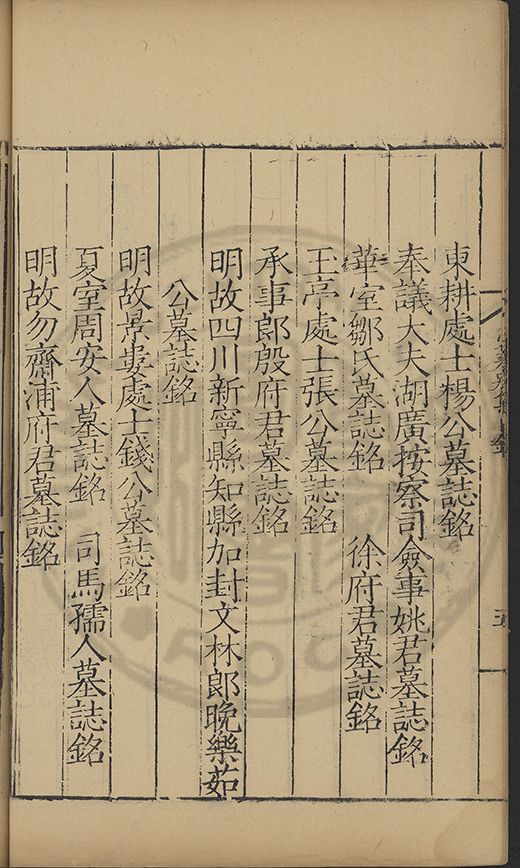 東耕處士楊公墓誌銘
奉議大夫湖廣按察司僉事姚君墓誌銘
華室鄒氏墓誌銘 徐府君墓誌銘
玉亭處士張公墓誌銘
承事郎殷府君墓誌銘
明故四川新寧縣知縣加封文林郎晚樂茹
公墓誌銘
明故景婁處士錢公墓誌銘
夏室周安人墓誌銘 司馬孺人墓誌銘
明故勿齋浦府君墓誌銘